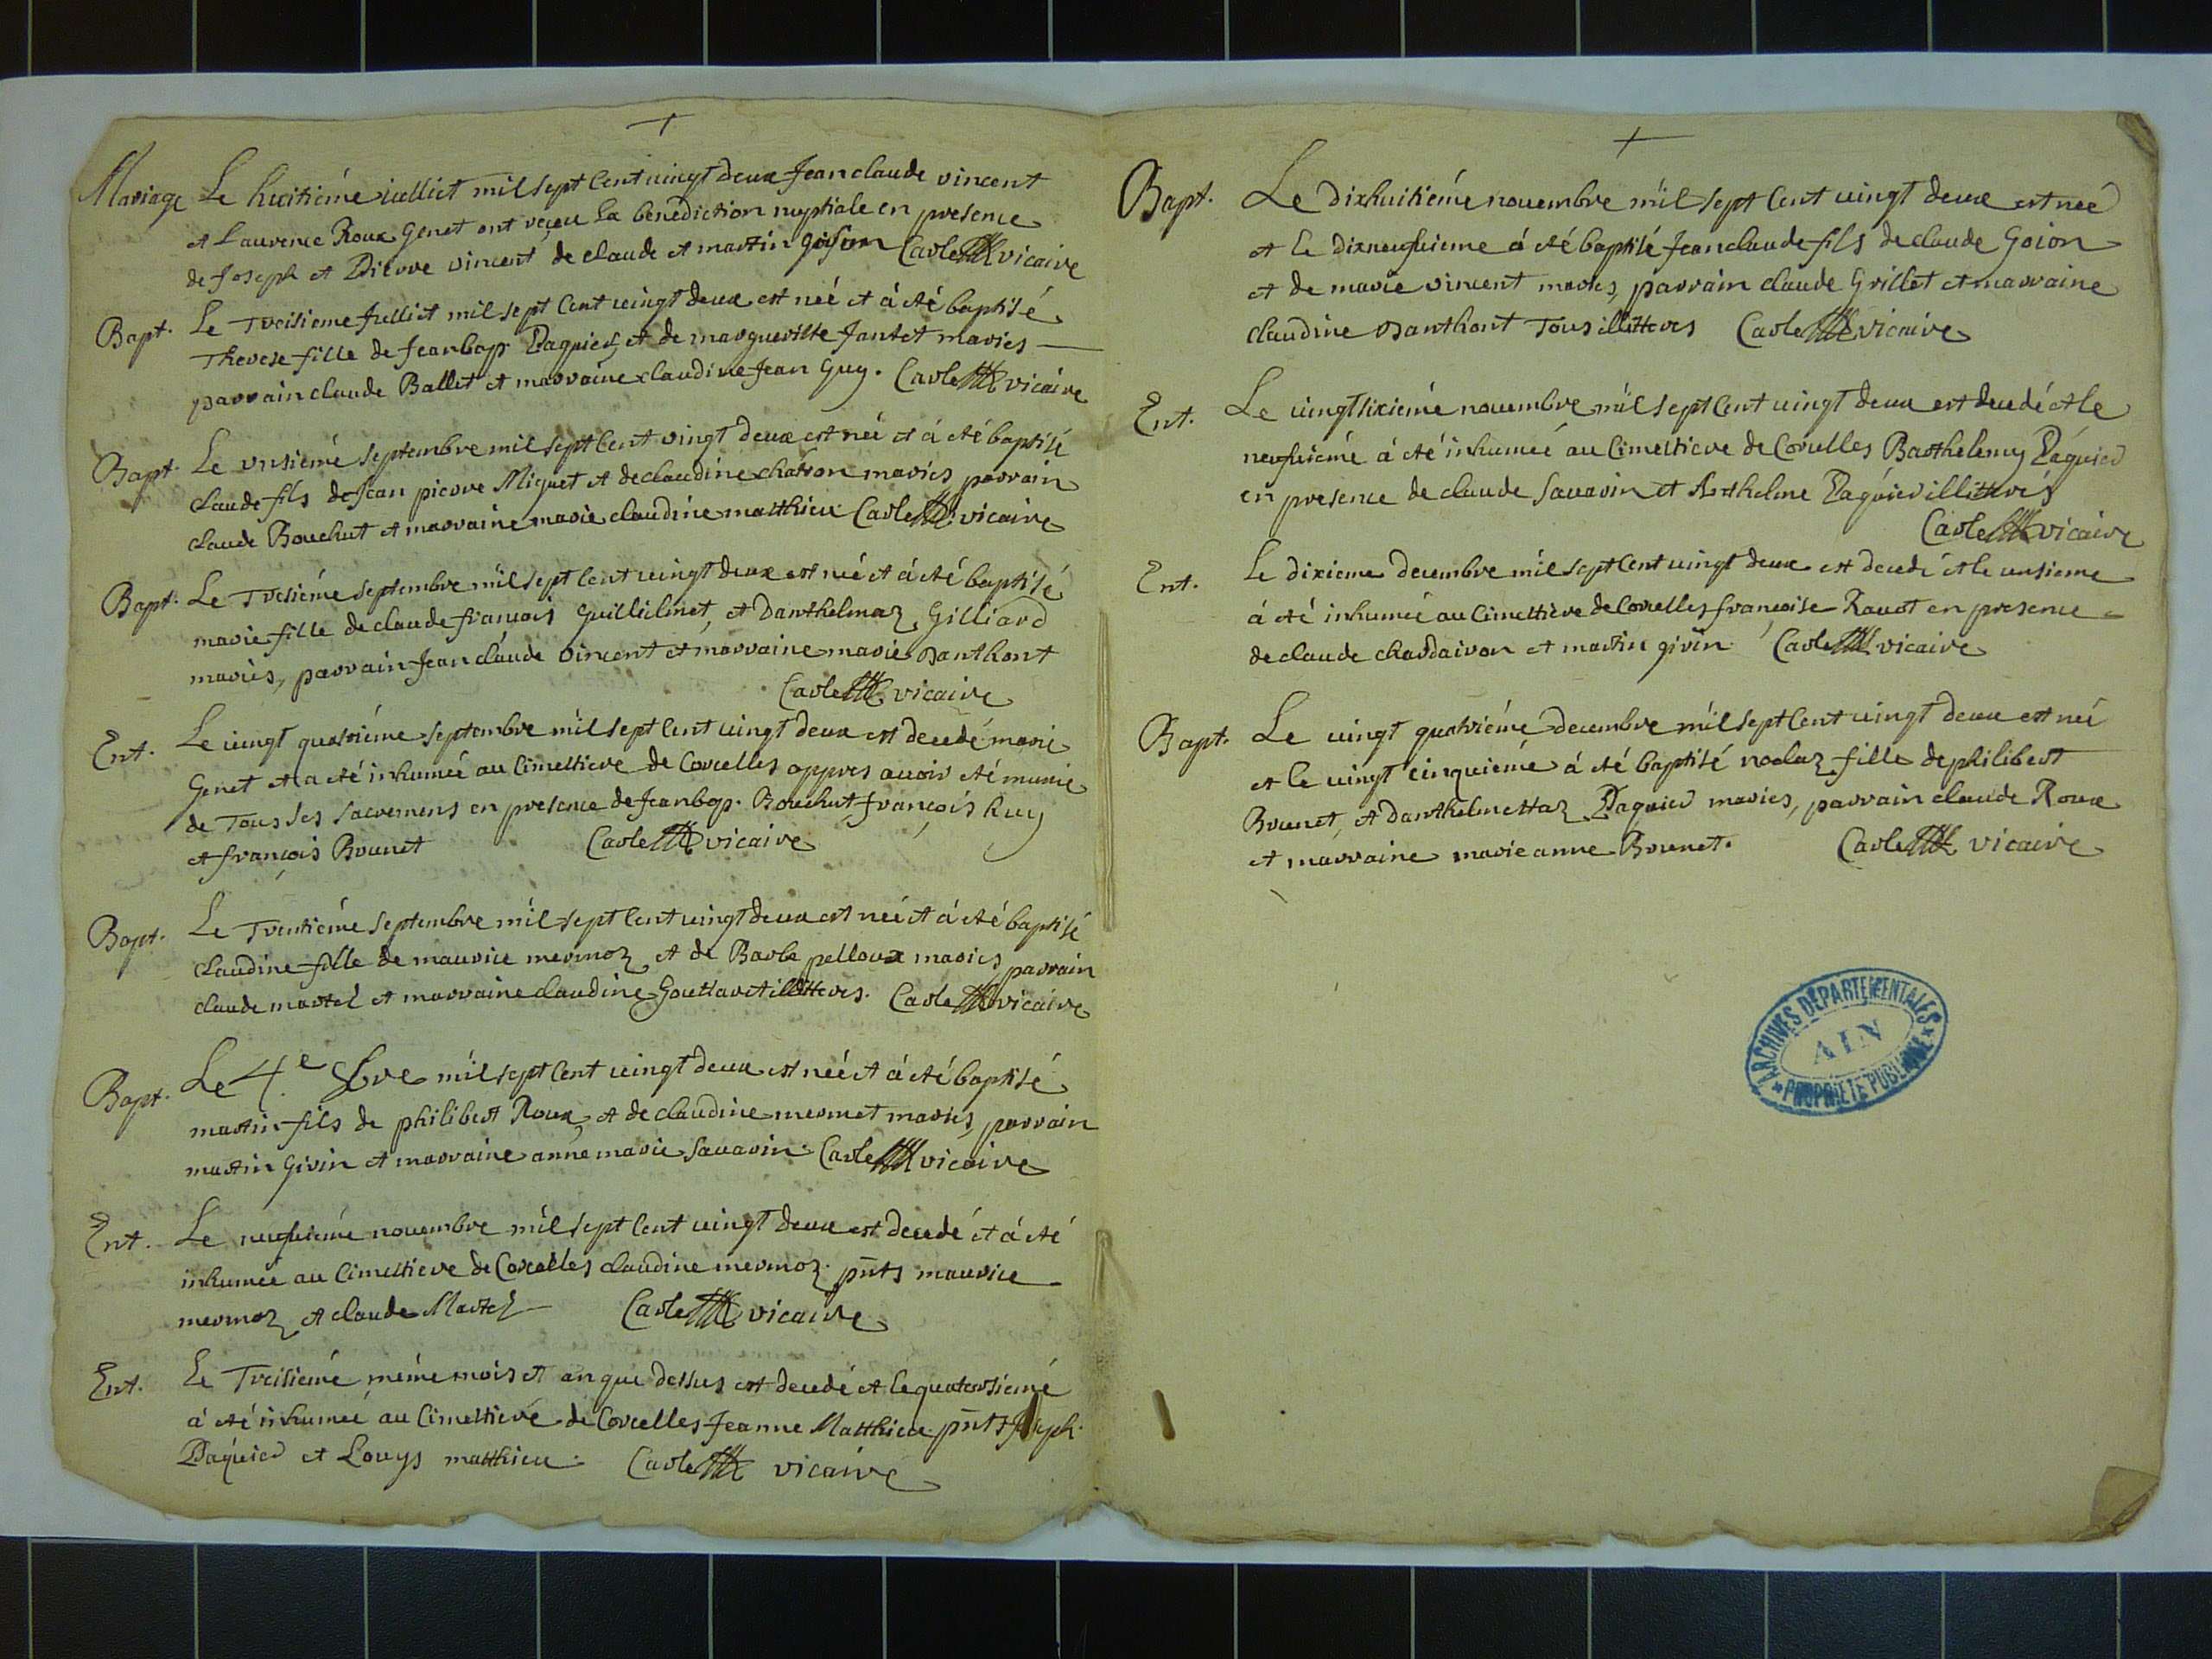 +
Mariage Le huitiéme iulliet mil sept Cent uingt deux Jean claude vincent
et Laurence Roux Genet ont reçeu la benediction nuptiale en presence
de Joseph et Pierre vincent de claude et martin Carle vicaire
Bapt. Le Treisieme Julliet mil sept Cent uingt deux est née et á eté baptisé
Therese fille de Jeanbap Paquier, et de margueritte Jantet mariés
parrain claude Ballet et marraine claudine Jean Guy. Carle vicaire
Bapt. Le unsiémé septembre mil sept Cent vingt deux est né et á eté baptisé
claude fils de Jean pierre Miguet et de claudine chatron mariés parrain
claude Bouchut et marraine marie claudine matthieu Carle vicaire
Bapt. Le Tresiémé septembre mil sept Cent uingt deux est né et á eté baptisé
marie fille de claude francois Guillielmet, et Danthelmaz Gilliard
mariés, parrain Jean claude vincent et marraine marie Danthont
Carle vicaire
Ent. Le uingt quatriéme septembre mil sept Cent uingt deux est decedé marie
Genet et a eté inhumeé au Cimettiere de Corcelles appres auoir eté munie
de Tous les sacremens en presence de Jeanbap. Bouchut, françois huy
et françois Brunet Carle vicaire
Bapt. Le Trentiéme septembre mil sept Cent uingt deux est né et á eté baptisé
claudine fille de maurice mermoz et de Barbe pelloux mariés parrain
claude martel et marraine claudine Gouttaret illitterés. Carle vicaire
Bapt. Le 4e 8bre mil sept Cent uingt deux est né et á eté baptisé
martin fils de philibert Roux, et de claudine mermet mariés, parrain
martin Girin et marraine anne marie Sauarin. Carle vicaire
Ent. Le neufuiémé nouembre mil sept Cent uingt deux est decedé et á eté
inhumeé au Cimettiere de Corcelles claudine mermoz. pnts maurice
mermoz et claude Martel Carle vicaire
Ent. Le Treisiémé méme mois et an que dessus est decedé et le quatorsiemé
á eté inhumeé au Cimettiere de Corcelles Jeanne Matthieu pnts Joseph
Paquier et Louys matthieu. Carle vicaire
+
Bapt. Le dixhuitiémé nouembre mil sept Cent uingt deux est neé
et le dixneufuieme á eté baptisé Jean claude fils de claude Goion
et de marie vincent mariés, parrain claude Grillet et marraine
claudine Danthont Tous illitterés Carle vicaire
Ent. Le uingtsixiémé nouembre mil sept Cent uingt deux est decedé et le
neufuiémé á eté inhumeé au Cimettiere de Corcelles Barthelemy Paquier
en presence de claude Sauarin et Anthelme Paquier illitterés
Carle vicaire
Ent. Le dixieme decembre mil sept Cent uingt deux est decedé et le unsieme
á eté inhumeé au Cimettiere de Corcelles françoise Rauot en presence
de claude chardairon et martin girin. Carle vicaire
Bapt. Le uingt quatriémé decembre mil sept Cent uingt deux est neé
et le uingt cinquiémé á eté baptisé noelaz fille de philibert
Brunet, et Danthelmettaz Paquier mariés, parrain claude Roux
et marraine marie anne Brunet. Carle vicaire
ARCHIVES DÉPARTEMENTALES
AIN
PROPRIÉTÉ PUBLIQUE